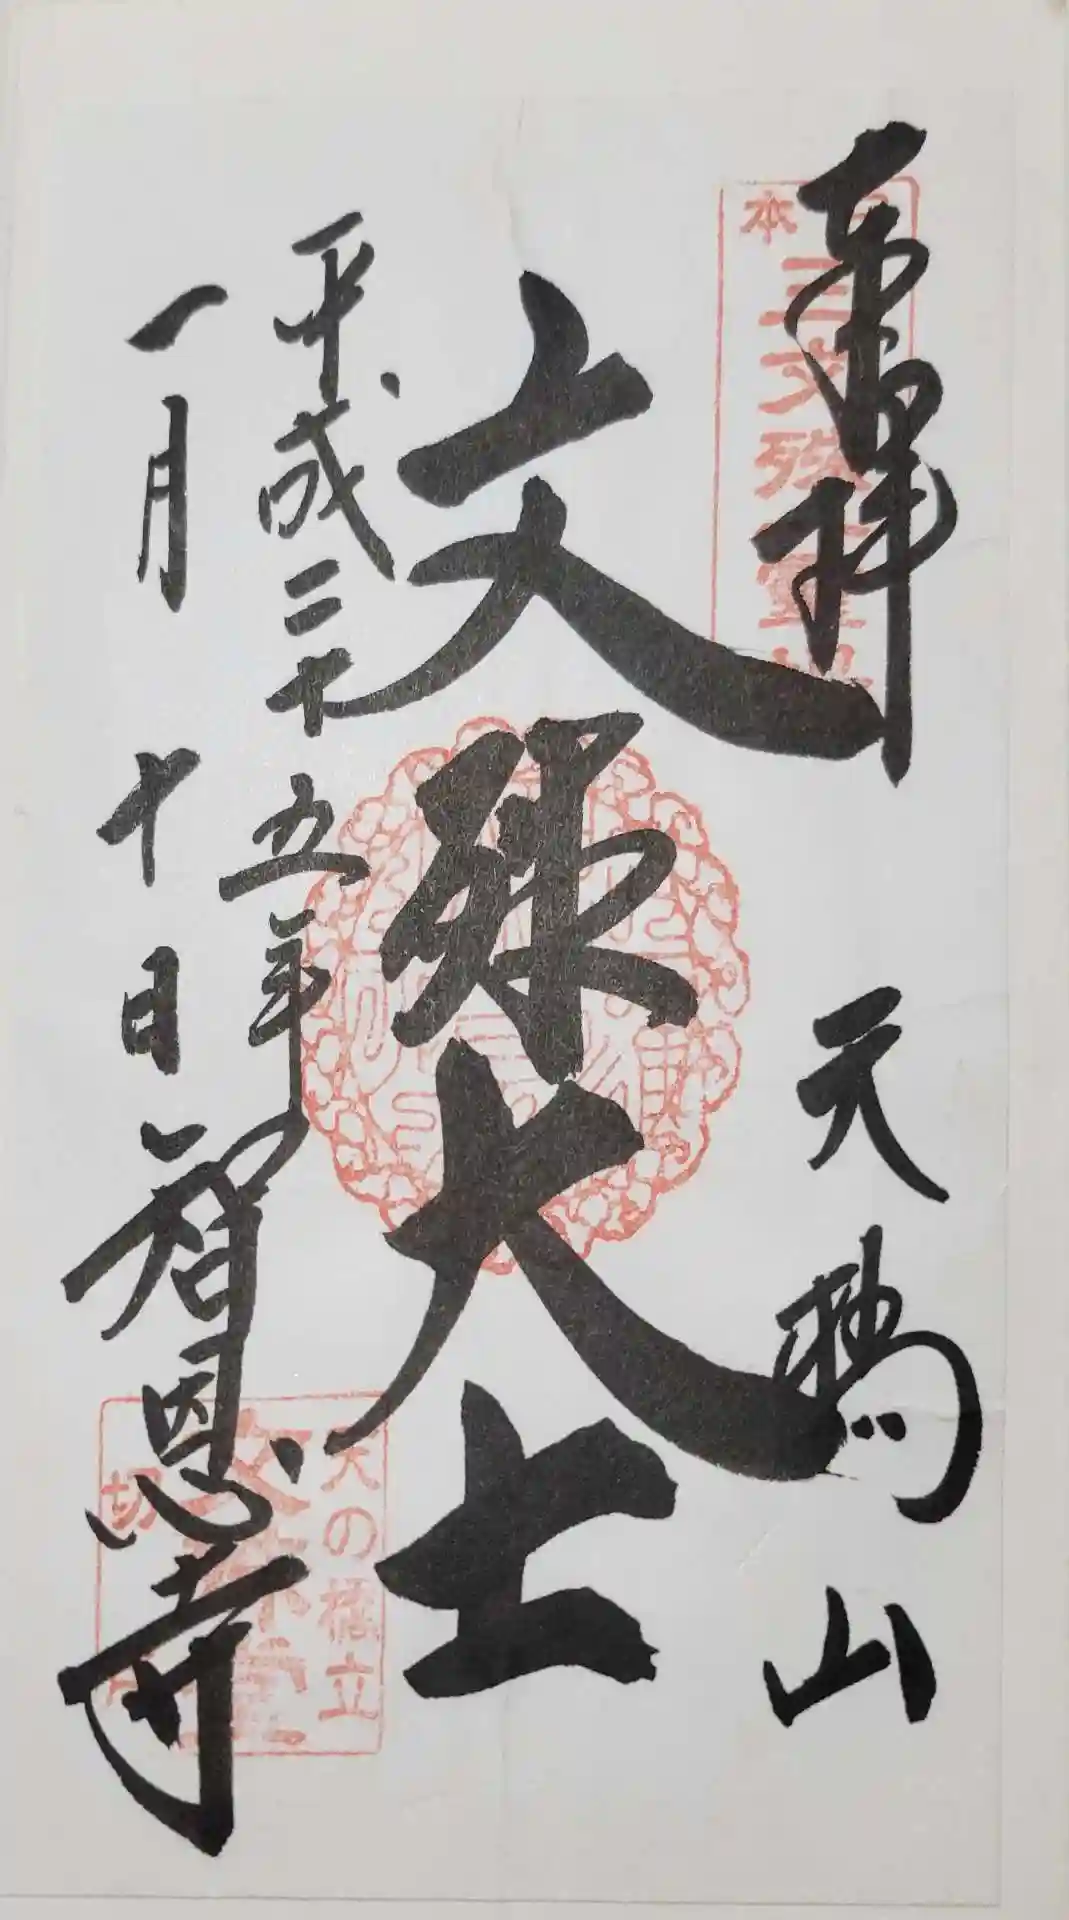 奉拝 天橋山
日本三文殊霊場
文殊大士
平成二十五年
一月十日 智恩寺
天の橋立
文殊堂
切戸